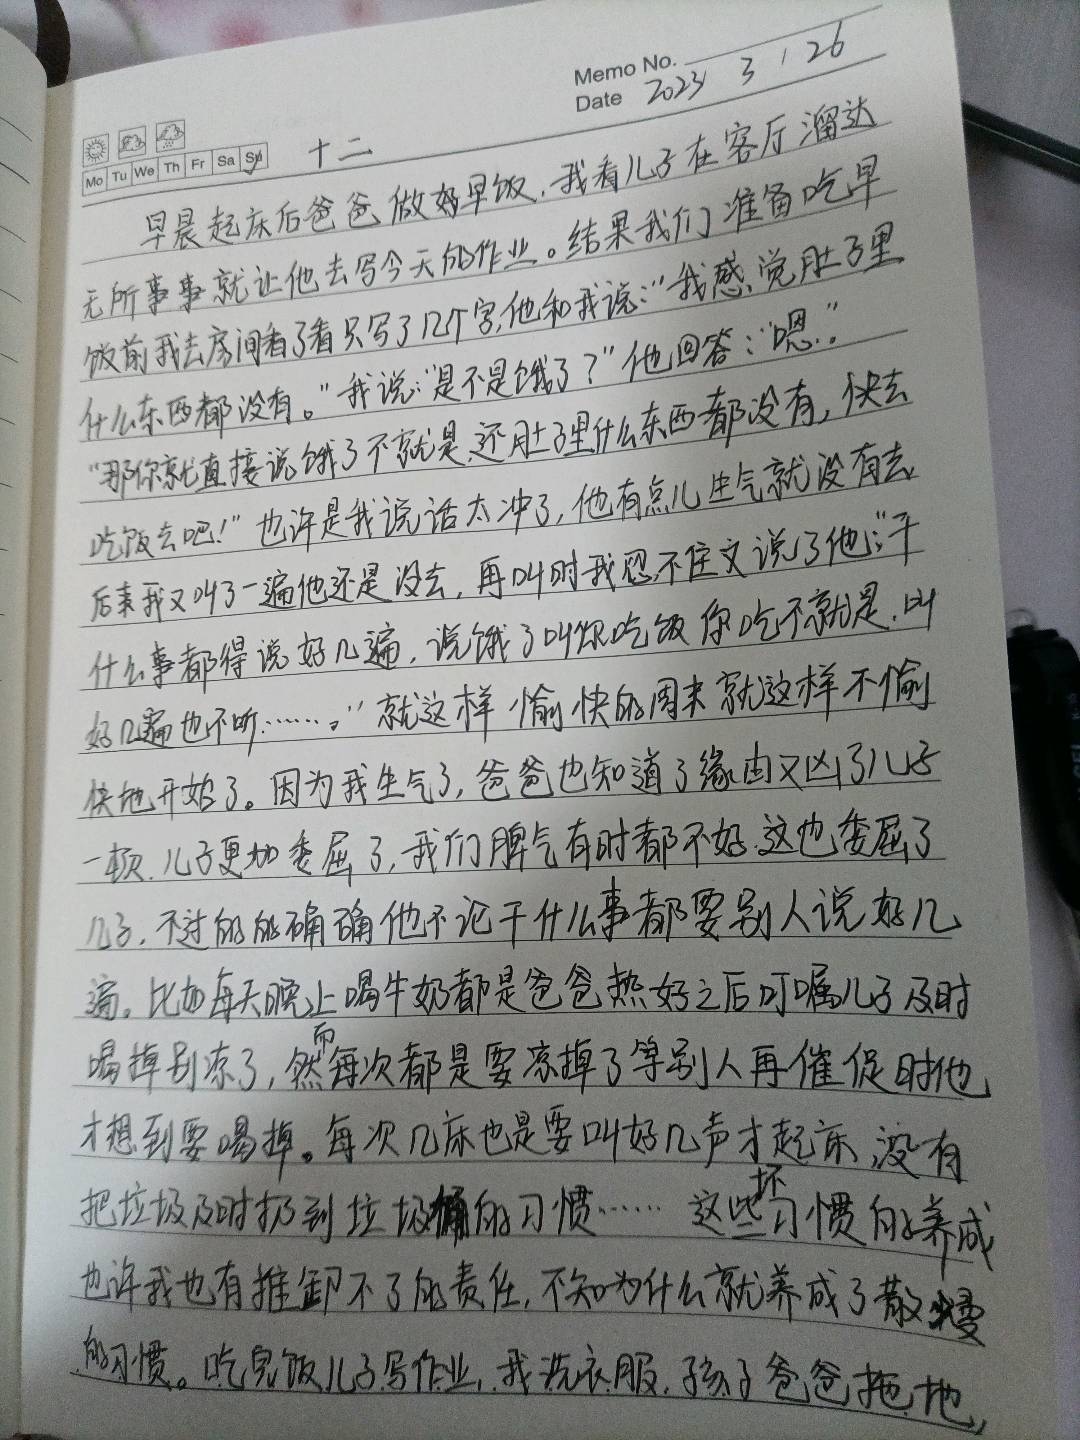 Memo No.
Date 2023 3 / 26
Mo Tu We Th Fr Sa Su
十二
早晨起床后爸爸做好早饭,我看儿子在客厅溜达
无所事事就让他去写今天的作业。结果我们准备吃早
饭前我去房间看了看只写了几个字,他和我说:“我感觉肚子里
什么东西都没有。”我说:“是不是饿了?”他回答:“嗯。”
“那你就直接说饿了不就是,还肚子里什么东西都没有,快去
吃饭去吧!”也许是我说话太冲了,他有点儿生气就没有去,
后来我又叫了一遍他还是没去,再叫时我忍不住又说了他:“干
什么事都得说好几遍,说饿了叫你吃饭你吃不就是,叫
好几遍也不听……。”就这样愉快的周末就这样不愉
快地开始了。因为我生气了,爸爸也知道了缘由又凶了儿子
一顿,儿子更加委屈了,我们脾气有时都不好,这也委屈了
儿子,不过的的确确他不论干什么事都要别人说好几
遍。比如每天晚上喝牛奶都是爸爸热好之后叮嘱儿子及时
喝掉别凉了,然而每次都是要凉掉了等别人再催促时他
才想到要喝掉。每次几床也是要叫好几声才起床,没有
把垃圾及时扔到垃圾桶的习惯…… 这些坏习惯的养成
也许我也有推卸不了的责任,不知为什么就养成了散漫
的习惯。吃完饭儿子写作业,我洗衣服,孩子爸爸拖地,